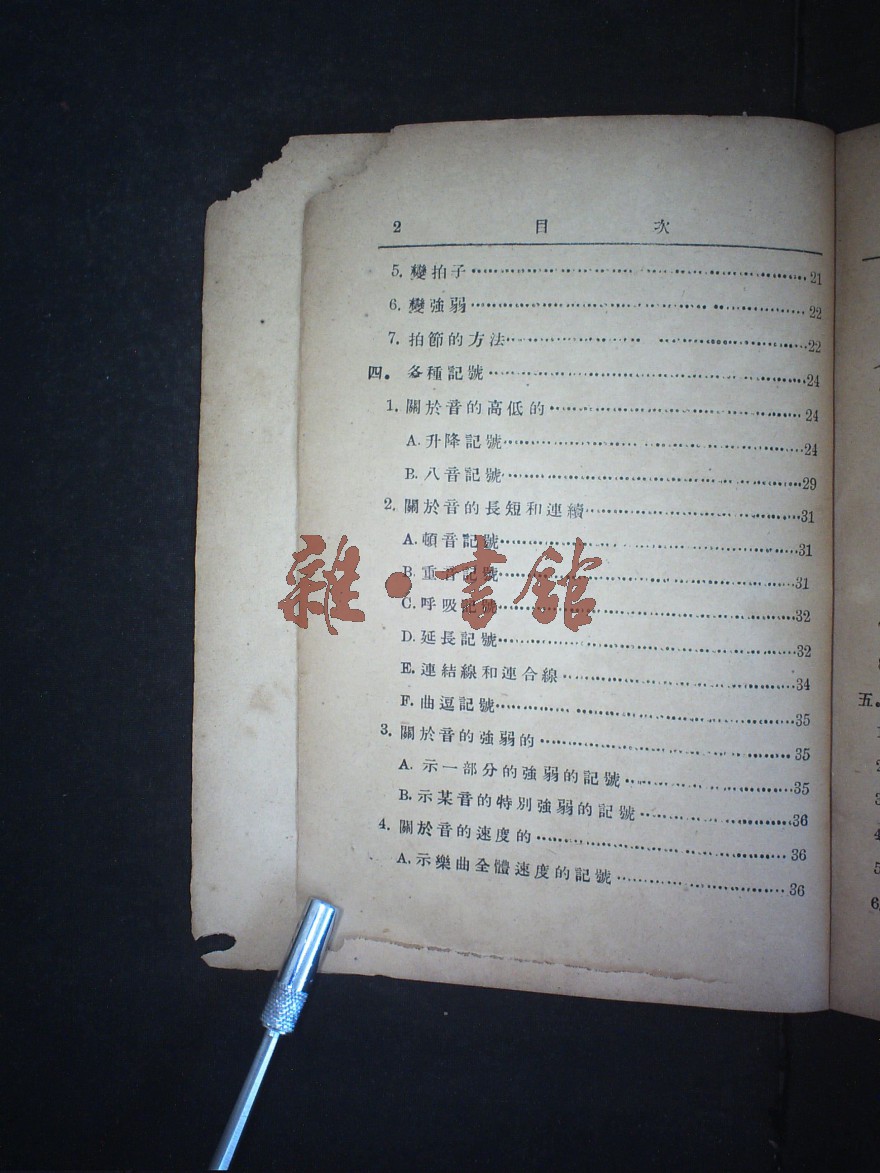 2 目 次
5. 變拍子 21
6. 變強弱 22
7. 拍節的方法 22
四. 各種記號 24
1. 關於音的高低的 24
A. 升降記號 24
B. 八音記號 29
2. 關於音的長短和連續 31
A. 頓音記號 31
B. 重音記號 31
C. 呼吸記號 32
D. 延長記號 32
E. 連結線和連合線 34
F. 曲逗記號 35
3. 關於音的強弱的 35
A. 示一部分的強弱的記號 35
B. 示某音的特別強弱的記號 36
4. 關於音的速度的 36
A. 示樂曲全體速度的記號 36
雜·書館
五.